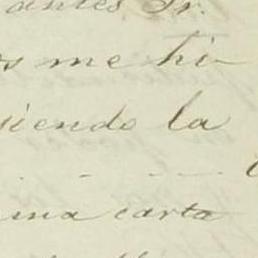 antes Sr.
s me hi-
siendo la
ma carta